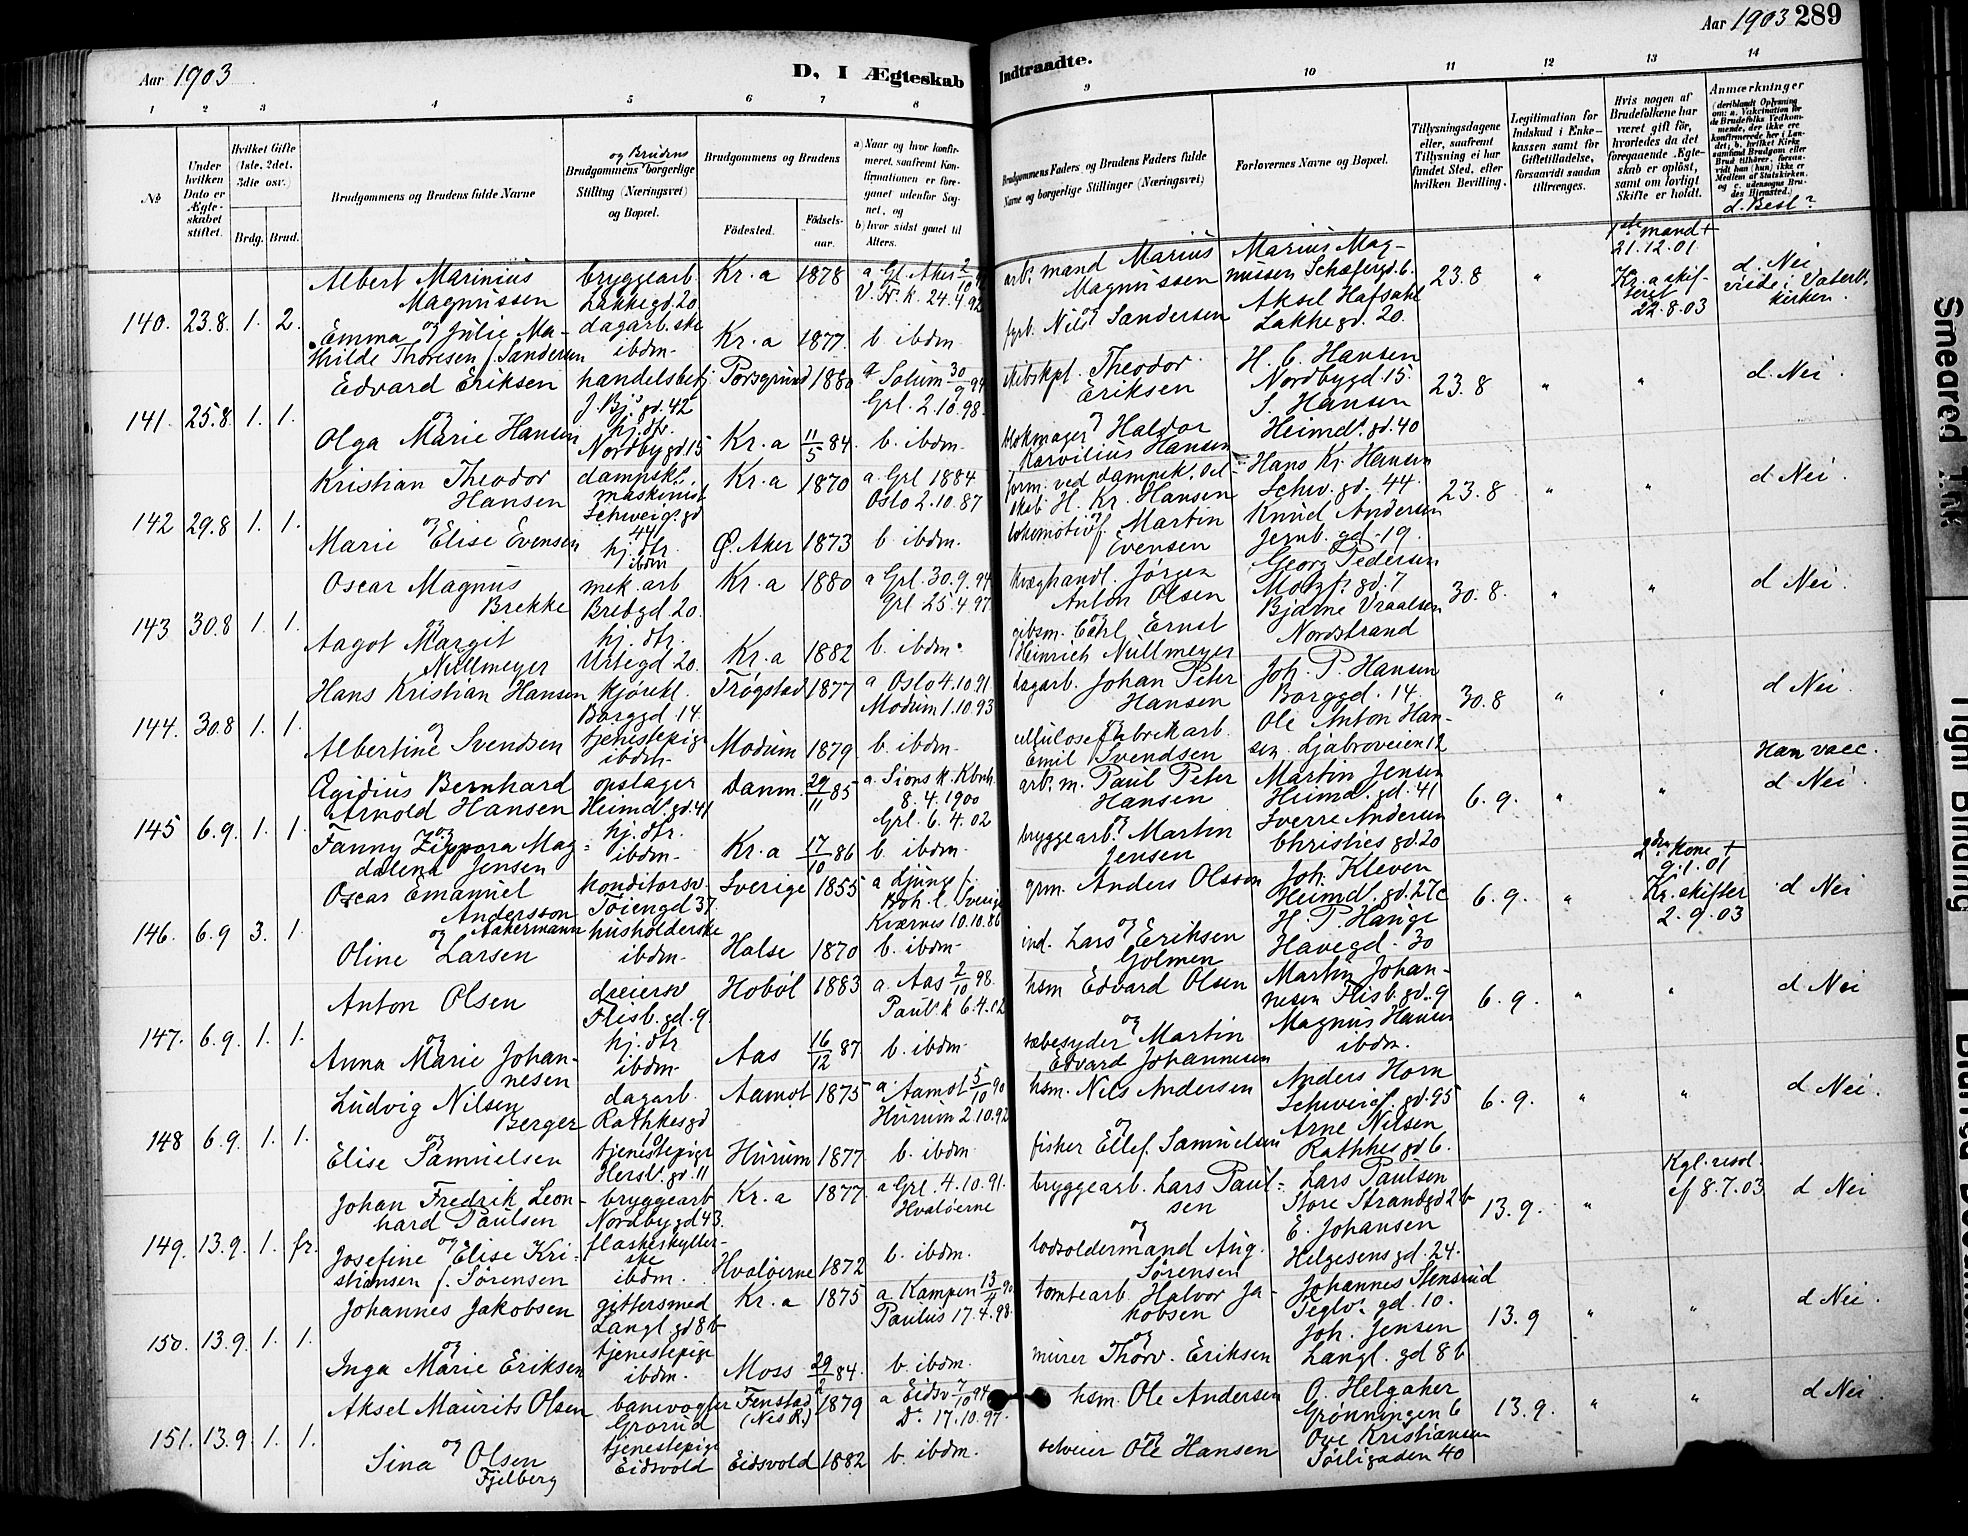 Aar 1903
D, I Ægteskab
Indtraadte.
Aar 1903 289
1 2 3 4 5 6 7 8 9 10 11 12 13 14
No
Under hvilken Dato er Ægteskabet stiftet.
Hvilket Gifte (1ste. 2det. 3die osv.)
Brdg. Brud.
Brudgommens og Brudens fulde Navne
og Brudens
Brudgommens borgerlige Stilling (Næringsvei) og Bopæl.
Brudgommens og Brudens
Fødested.
Fødselsaar.
a) Naar og hvor konfirmeret, saafremt Konfirmationen er foregaaet udenfor Sognet, og b) hvor sidst gaaet til Alters.
Brudgommens Faders og Brudens Faders fulde Navne og borgerlige Stillinger (Næringsvei)
Forlovernes Navne og Bopæl.
Tillysningsdagene eller, saafremt Tillysning ei har fundet Sted, efter hvilken Bevilling.
Legitimation for Indskud i Enkekassen samt for Giftetilladelse, forsaavidt saadan tiltrænges.
Hvis nogen af Brudefolkene har været gift før, hvorledes da det foregaaende Ægteskab er opløst, samt om lovligt Skifte er holdt.
Anmærkninger
d. Best?
140. 23.8. 1. 2.
Albert Marinius Magnussen
og
Emma Julie Mathilde Thoresen f. Sandersen
bryggearb.
Lakkegd. 20
dagarb.ske
ibdm.
Kr.a 1878
Kr.a 1877.
a. Gl. Aker
V. Fr. k. 24.4.92
b. ibdm.
arb.mand Marius Magnussen
og
fyrb. Nils Sandersen
Marius Magnussen Schæfergd. 6.
Aksel Hafsahl
Lakkegd. 20.
23.8
"
1ste mand +
21.12.01
Kr.a skifteret
22.8.03
d. Nei
viede i Vaterl. kirken.
141. 25.8. 1. 1.
Edvard Eriksen
og
Olga Marie Hansen
handelsbetj.
J. Bj.s gd. 42
hj. dtr.
Nordbygd 15
Porsgrund 1880
Kr.a 11/5 84.
a Solum 30/9 94
Grl. 2.10.98.
b. ibdm.
skibskpt. Theodor Eriksen
og
blokmager Haldor Karvilius Hansen
H. C. Hansen
Nordbygd. 15.
S. Hansen
Heimd. gd. 40
23.8
"
"
d. Nei.
142 29.8 1. 1.
Kristian Theodor Hansen
og
Marie Elise Evensen
dampsk. maskinist
Schweig. gd 44
hj. dtr.
ibdm
Kr.a 1870
Ø. Aker 1873
a. Grl 1884
Oslo 2.10.87
b. ibdm.
form. ved dampsk. selskab H. Kr. Hansen
og
lokomotivf. Martin Evensen
Hans Kr. Hansen
Schw. gd. 44.
Knud Andersen
Jernb. gd. 19.
23.8
"
"
d. Nei.
143 30.8 1. 1.
Oscar Magnus Brekke
og
Aagot Margit Nüllmeyer
mek. arb
Bretgd 20.
hj. dtr.
Urtegd 20.
Kr.a 1880
Kr.a 1882
a Grl. 30.9.94
Grl 25.4.97
b. ibdm.
kvæghandl. Jørgen Anton Olsen
og
gibsm. Carl Ernst Heinrich Nüllmeyer
Georg Pedersen
Motzf. gd. 7
Bjarne Vraalsen
Nordstrand
30.8.
"
"
d Nei.
144. 30.8 1. 1.
Hans Kristian Hansen
og
Albertine Svendsen
kjørekl.
Borggd 14.
tjenestepige
ibdm.
Trøgstad 1877
Modum 1879
a Oslo 4.10.91
Modum 1.10.93
b. ibdm.
dagarb. Johan Peter Hansen
og
cellulosefabrikarb. Emil Svendsen
Joh. P. Hansen
Borggd. 14.
Ole Anton Hansen. Ljabroveien 12
30.8
"
"
d Nei.
145 6.9. 1. 1.
Ægidius Bernhard Arnold Hansen
og
Fanny Zippora Magdalena Jensen
opslager
Heimd. gd. 41
hj. dtr.
ibdm.
Danm. 29/11 85
Kr.a 17/10 86
a. Sions k. Kbnh.
8.4.1900
Grl. 6.4.02
b. ibdm.
arb. m. Paul Peter Hansen
og
bryggearb. Martin Jensen
Martin Jensen
Heimd. gd. 41
Sverre Andersen
Christies gd. 20
6.9.
"
"
Han vacc.
d. Nei
146. 6.9 3. 1.
Oscar Emanuel Andersson Aakermann
og
Oline Larsen
konditorsv.
Tøiengd 37
husholderske
ibdm.
Sverige 1855
Halse 1870
a Ljung f.
Boh. l. Sverige
Kvernes 10.10.86
b. ibdm.
grm. Anders Olsson
og
ind. Lars Eriksen Golmen
Joh. Kleven
Heimd. gd. 27c
H. P. Hauge
Havegd. 30
6.9.
"
2den kone +
9.1.01
Kr. skifter
2.9.03
d Nei
147. 6.9. 1. 1.
Anton Olsen
og
Anna Marie Johannesen
dreiersv
Flisb. gd. 9.
hj. dtr
ibdm.
Hobøl 1883
Aas 16/12 87
a. Aas 2/10 98.
Paul. k 6.4.02
b. ibdm.
hsm Edvard Olsen
og
sæbesyder Martin Edvard Johannesen
Martin Johannesen Flisb. gd. 9
Magnus Hansen
ibdm.
6.9.
"
"
d Nei
148 6.9. 1. 1.
Ludvig Nilsen Berger
og
Elise Samuelsen
dagarb.
Rathkesgd
tjenestepige
Hersl. gd. 11
Aamot 1875
Hurum 1877
a. Aamot 5/10 90
Hurum 2.10.92
b. ibdm.
hsm. Nils Andersen
og
fisker Ellef Samuelsen
Anders Horn
Schweig. gd. 95
Arne Nilsen
Rathkes gd 6.
6.9.
"
"
d Nei.
149. 13.9. 1. fr.
Johan Fredrik Leonhard Paulsen
og
Josefine Elise Kristiansen f. Sørensen
bryggearb
Nordbygd 43.
flaskeskyllerske
ibdm.
Kr.a 1877.
Hvaløerne 1872
a Grl. 4.10.91.
Hvaløerne
b. ibdm.
bryggearb. Lars Paulsen
og
lodsoldermand Aug. Sørensen
Lars Paulsen
Store Strandgd 2b
E. Johansen
Helgesens gd. 24.
13.9.
"
Kgl. resol.
af 8.7.03
d Nei
150. 13.9. 1. 1.
Johannes Jakobsen
og
Inga Marie Eriksen
gittersmed
Langl. gd 8b
tjenestepige
ibdm.
Kr.a 1875
Moss 29/2 84.
a. Kampen 13/4 90
Paulus 17.4.98.
b. ibdm.
tomtearb. Halvor Jakobsen
og
murer Thorv. Eriksen
Johannes Stensrud
Teglv. gd. 10.
Joh. Jensen
Langl. gd 8b
13.9
"
"
d Nei.
151. 13.9 1. 1.
Aksel Maurits Olsen
og
Sina Olsen Fjelberg
banevogter
Grorud
tjenestepige
Eidsvold
Fenstad (Nes R.) 1879
Eidsvold 1882
a Eidsv 7/10 94
Do. 17.10.97.
b. ibdm.
hsm. Ole Andersen
og
selveier Ole Hansen
O. Helgaker
Grønningen 6
Ove Kristiansen
Sørligaden 40
13.9.
"
"
d Nei.
Smeared Ink
Tight Binding